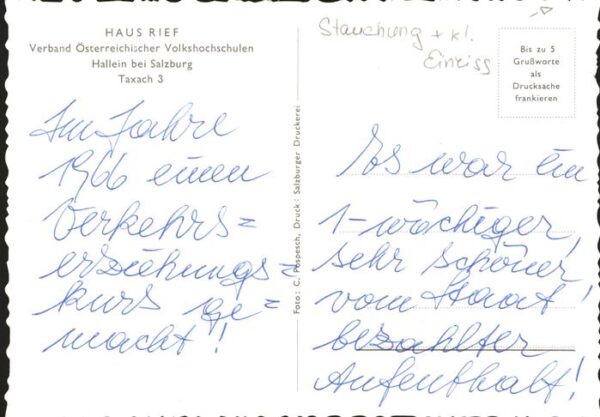 HAUS RIEF
Verband Österreichischer Volkshochschulen
Hallein bei Salzburg
Taxach 3
Stauchung + kl.
Einriss
Bis zu 5
Grußworte
als
Drucksache
frankieren
Im Jahre
1966 einen
Verkehrs=
erziehungs=
kurs ge=
macht!
Foto: C. Pospesch, Druck: Salzburger Druckerei
Es war ein
1-wöchiger,
sehr schöner
vom Staat!
bezahlter
Aufenthalt!